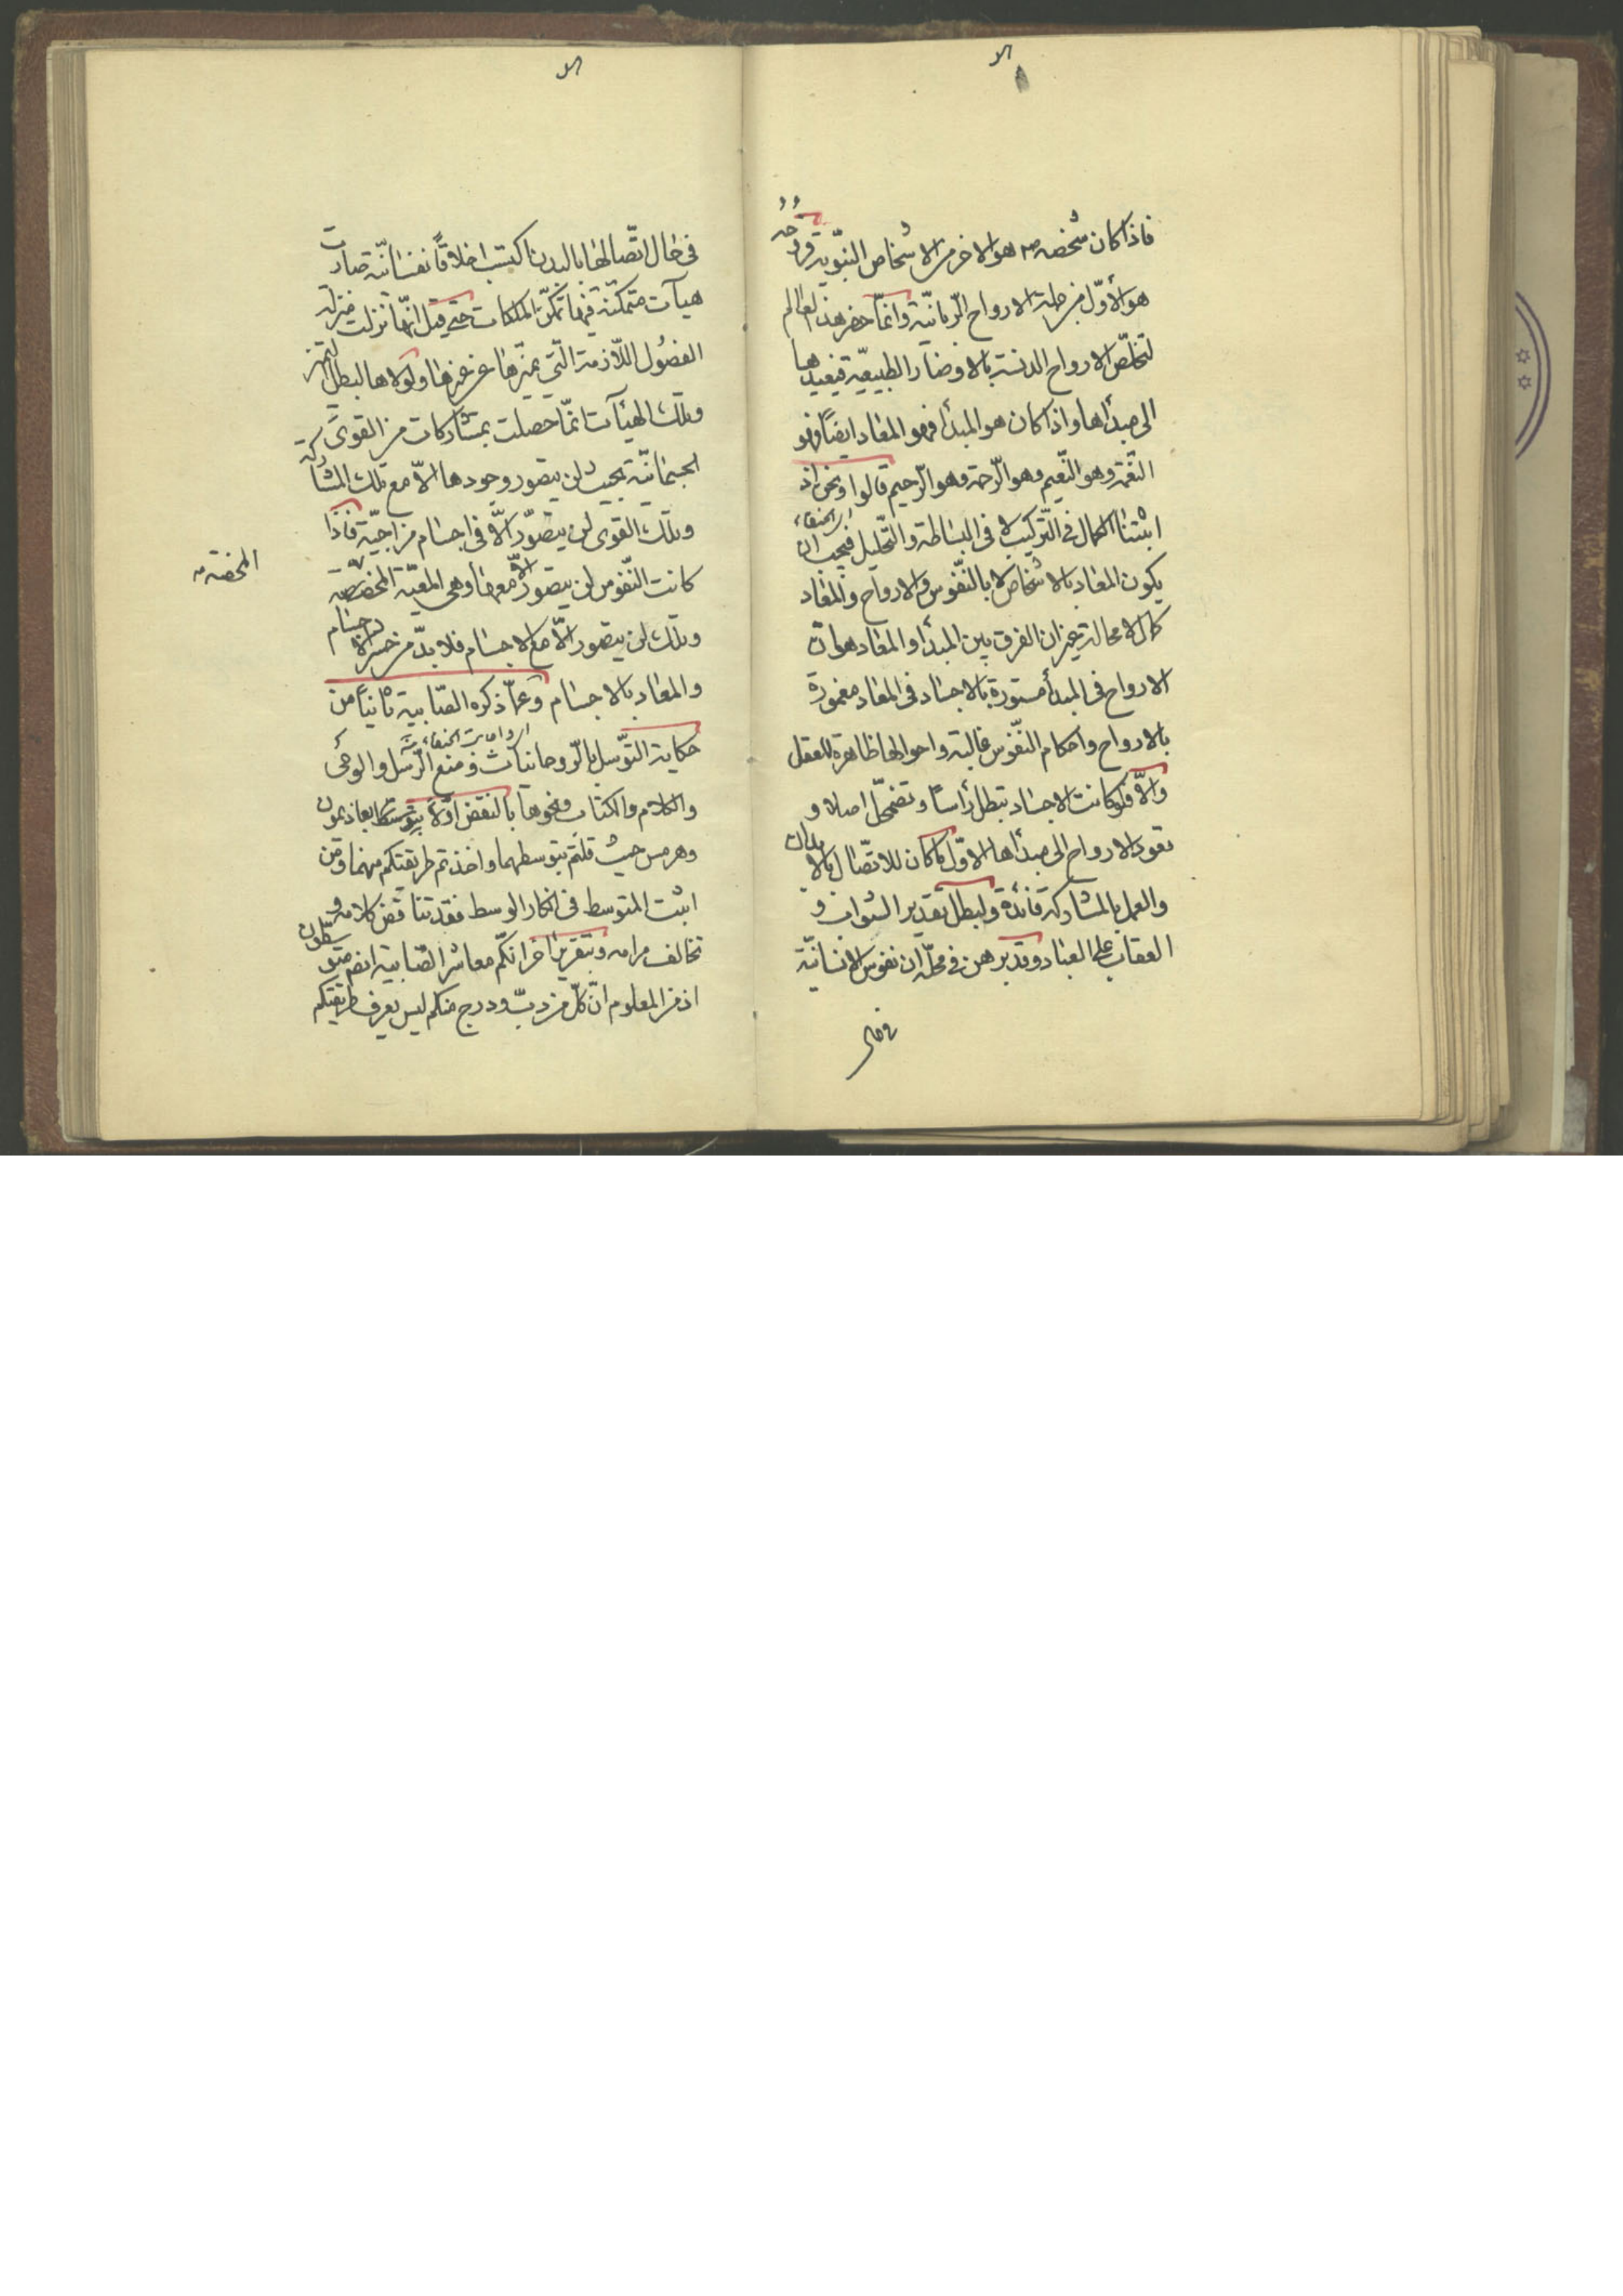 فاذا كان شخصه هو الاخر من الاشخاص النبوية فروحه
هو الأوّل من جملة الارواح الربانيّة وانّما حضر هذا العالم
لتخلّص الارواح الدنسة بالاوضار الطبيعيّة فيعيدها
الى مبدأها واذا كان هو المبدأ فهو المعاد ايضاً وهو
النّعمة وهو النّعيم وهو الرّحمة وهو الرّحيم قالوا ونحن اذ
اى الحنفاء
اثبتنا الكمال فى التّركيب لا فى البساطة والتّحليل فيجب ان
يكون المعاد بالاشخاص لا بالنّفوس والارواح والمعاد
كمال لا محالة غير ان الفرق بين المبدأ والمعاد هو ان
الارواح فى المبدأ مستورة بالاجساد فى المعاد مغمورة
بالارواح واحكام النّفوس غالبة واحوالها ظاهرة للعقل
والّا فلو كانت الاجساد تبطل رأساً وتضمحلّ اصلا و
تعود الارواح الى مبدأها الاوّل ما كان للاتّصال بالابدان
والعمل بالمشاركة فائدة ولبطل تقدير الثواب و
العقاب على العباد وقد برهن فى محلّه ان نفوس الانسانيّة
فى حال
فى حال اتّصالها بالبدن اكتسب اخلاقاً نفسانيّة صارت
هيآت متمكّنة فيها تمكّن الملكات حتى قيل انّها نزلت منزلة
الفصُول اللّازمة الّتى يميّزها عن غيرها ولولاها لبطل التميز
وتلك الهيئآت انّما حصلت بمشاركات من القوى
الجسمانيّة بحيث لن يتصور وجودها الّا مع تلك المشاركة
وتلك القوى لن يتصوّر الّا فى اجسام مزاجيّة فاذا
كانت النّفوس لن يتصور الّا معها وهى المعيّة المخصّصة
المخصّة
وتلك لن يتصور الّا مع الاجسام فلا بدّ من حشر الاجسام
والمعاد بالاجسام وعمّا ذكره الصّابية ثانياً من
حكاية التوّسل بالرّوحانيّات ومنع الرّسل والوحى
والكلام والكتاب ونحوها بالنقض اوّلاً بتوسّط بعاذيمون
وهرمس حيث قلتم بتوسطهما واخذتم طريقتكم منهما ومن
اثبت المتوسط فى انكار الوسط فقد تناقض كلامه و
تخالف مرامه وبتقرير اخر انكّم معاشر الصّابية ايضاً متوسطون
اذ من المعلوم انّ كلّ من دبّ ودرج منكم ليس يعرف طريقتكم